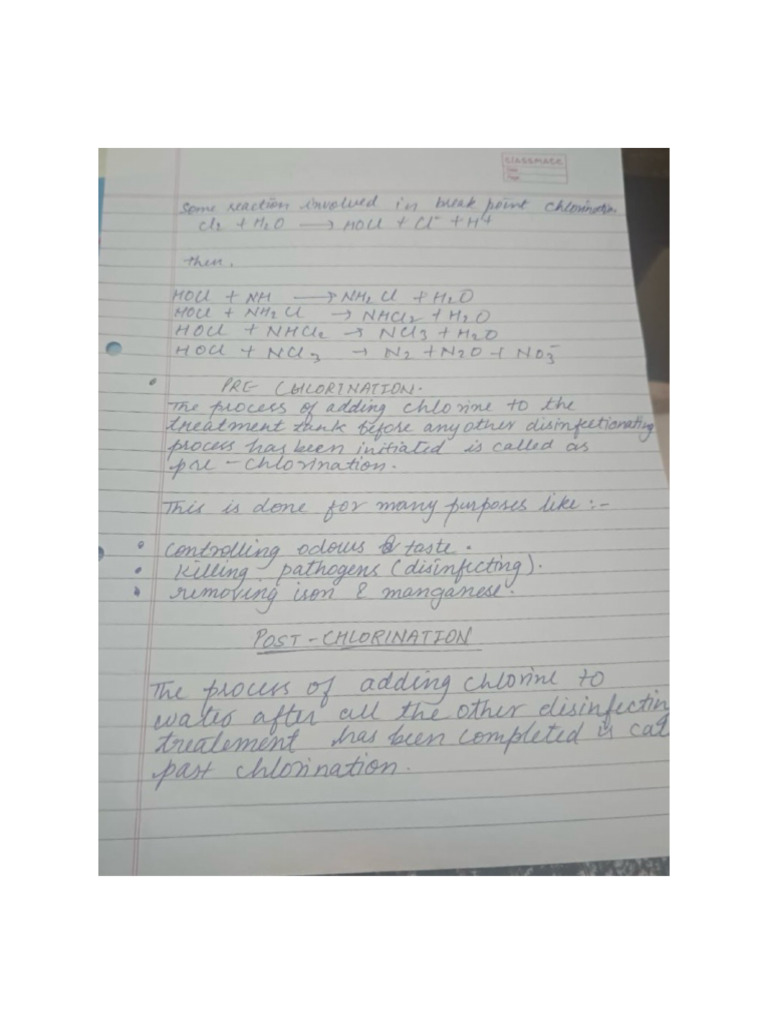 CLASSMATE
Date
Page
Some reaction involved in break point chlorination.
Cl₂ + H₂O ⟶ HOCl + Cl⁻ + H⁺
then.
HOCl + NH ⟶ NH₂Cl + H₂O
HOCl + NH₂Cl → NHCl₂ + H₂O
HOCl + NHCl₂ → NCl₃ + H₂O
HOCl + NCl₃ → N₂ + N2O + NO₃⁻
• PRE CHLORINATION.
The process of adding chlorine to the
treatment tank before any other disinfectionating
process has been initiated is called as
pre-chlorination.
This is done for many purposes like :-
• controlling odours & taste.
• killing pathogens (disinfecting).
• removing iron & manganese.
POST-CHLORINATION
The process of adding chlorine to
water after all the other disinfectin
treatement has been completed is cal
past chlorination.